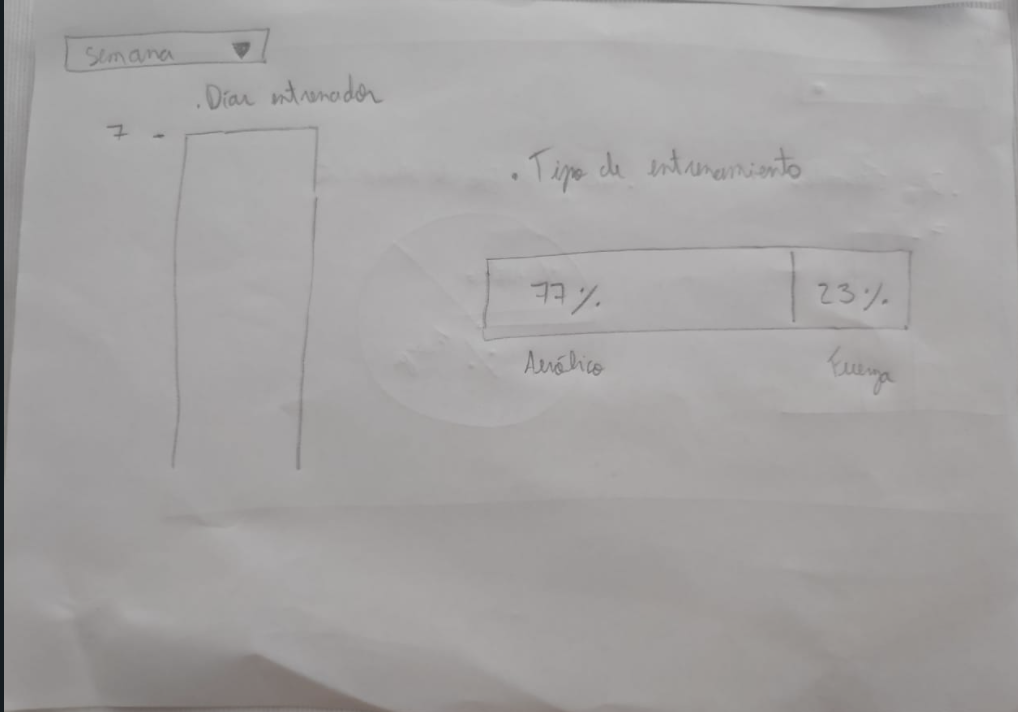 Semana
. Días entrenados
7 -
. Tipo de entrenamiento
77% 23%
Aeróbico Fuerza